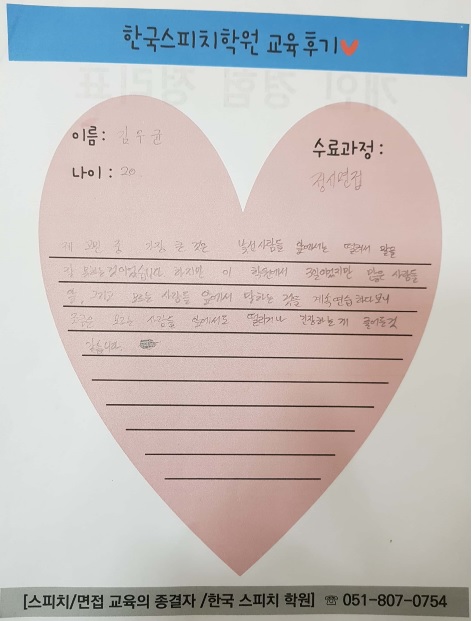 한국스피치학원 교육후기
이름: 김우균
수료과정:
나이: 20.
정시면접
제 고민 중 가장 큰 것은 낯선사람들 앞에서는 떨려서 말을
잘 못하는것이었습니다 하지만 이 학원에서 3일이었지만 많은 사람들
앞, 그리고 모르는 사람들 앞에서 말하는 것을 계속 연습하다보니
조금은 모르는 사람들 앞에서도 떨리거나 긴장하는게 줄어든것
같습니다.
[스피치/면접 교육의 종결자 /한국 스피치 학원] ☏ 051-807-0754